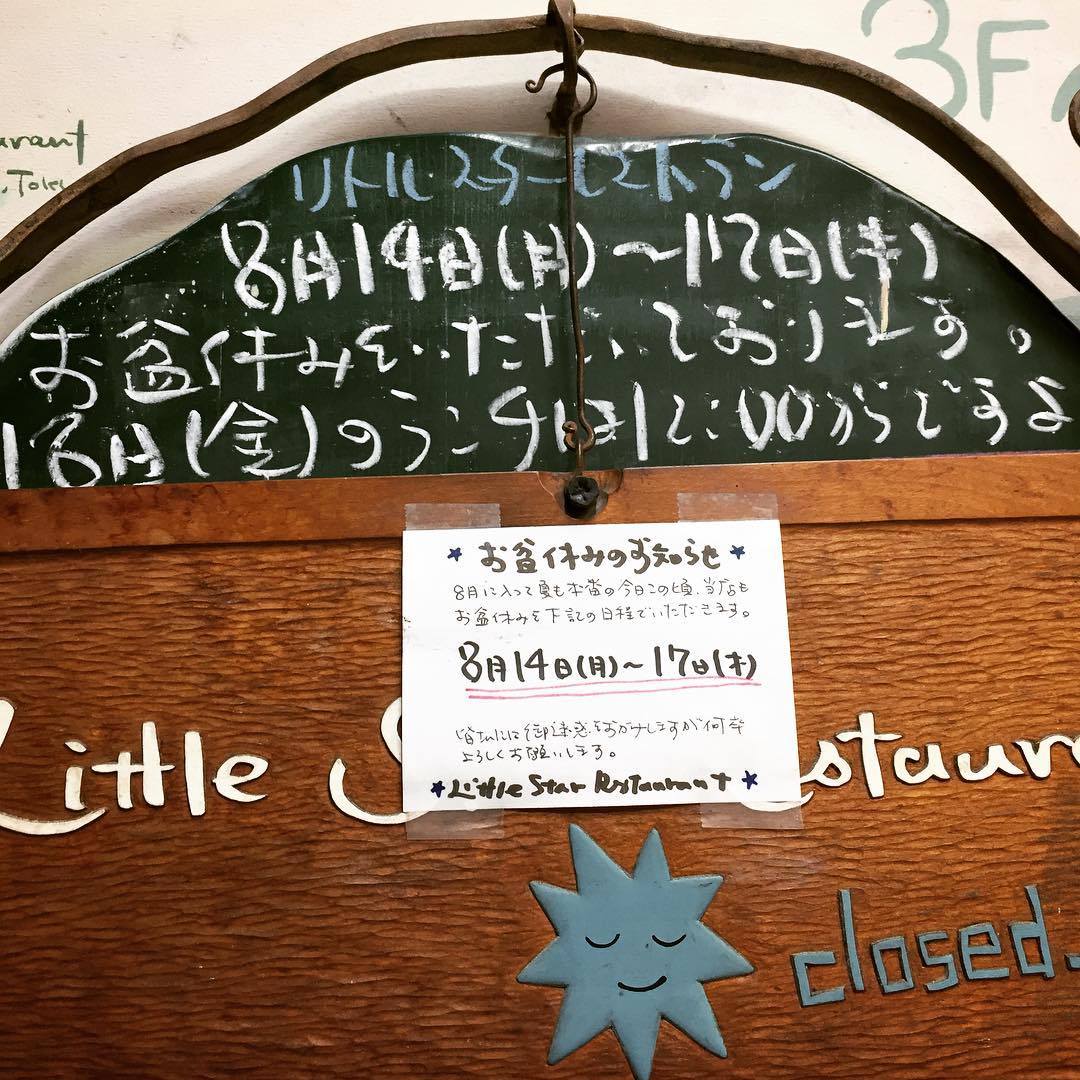 3F
urant
, Tok
リトルスターレストラン
8月14日(月)〜17日(木)
お盆休みをいただいております。
18日(金)のランチは12:00からですよ
★お盆休みのお知らせ★
8月に入って夏も本番の今日この頃、当店も
お盆休みを下記の日程でいただきます。
8月14日(月)〜17日(木)
皆さんには御迷惑をおかけしますが何卒
よろしくお願いします。
★Little Star Restaurant★
Little S estaur
closed